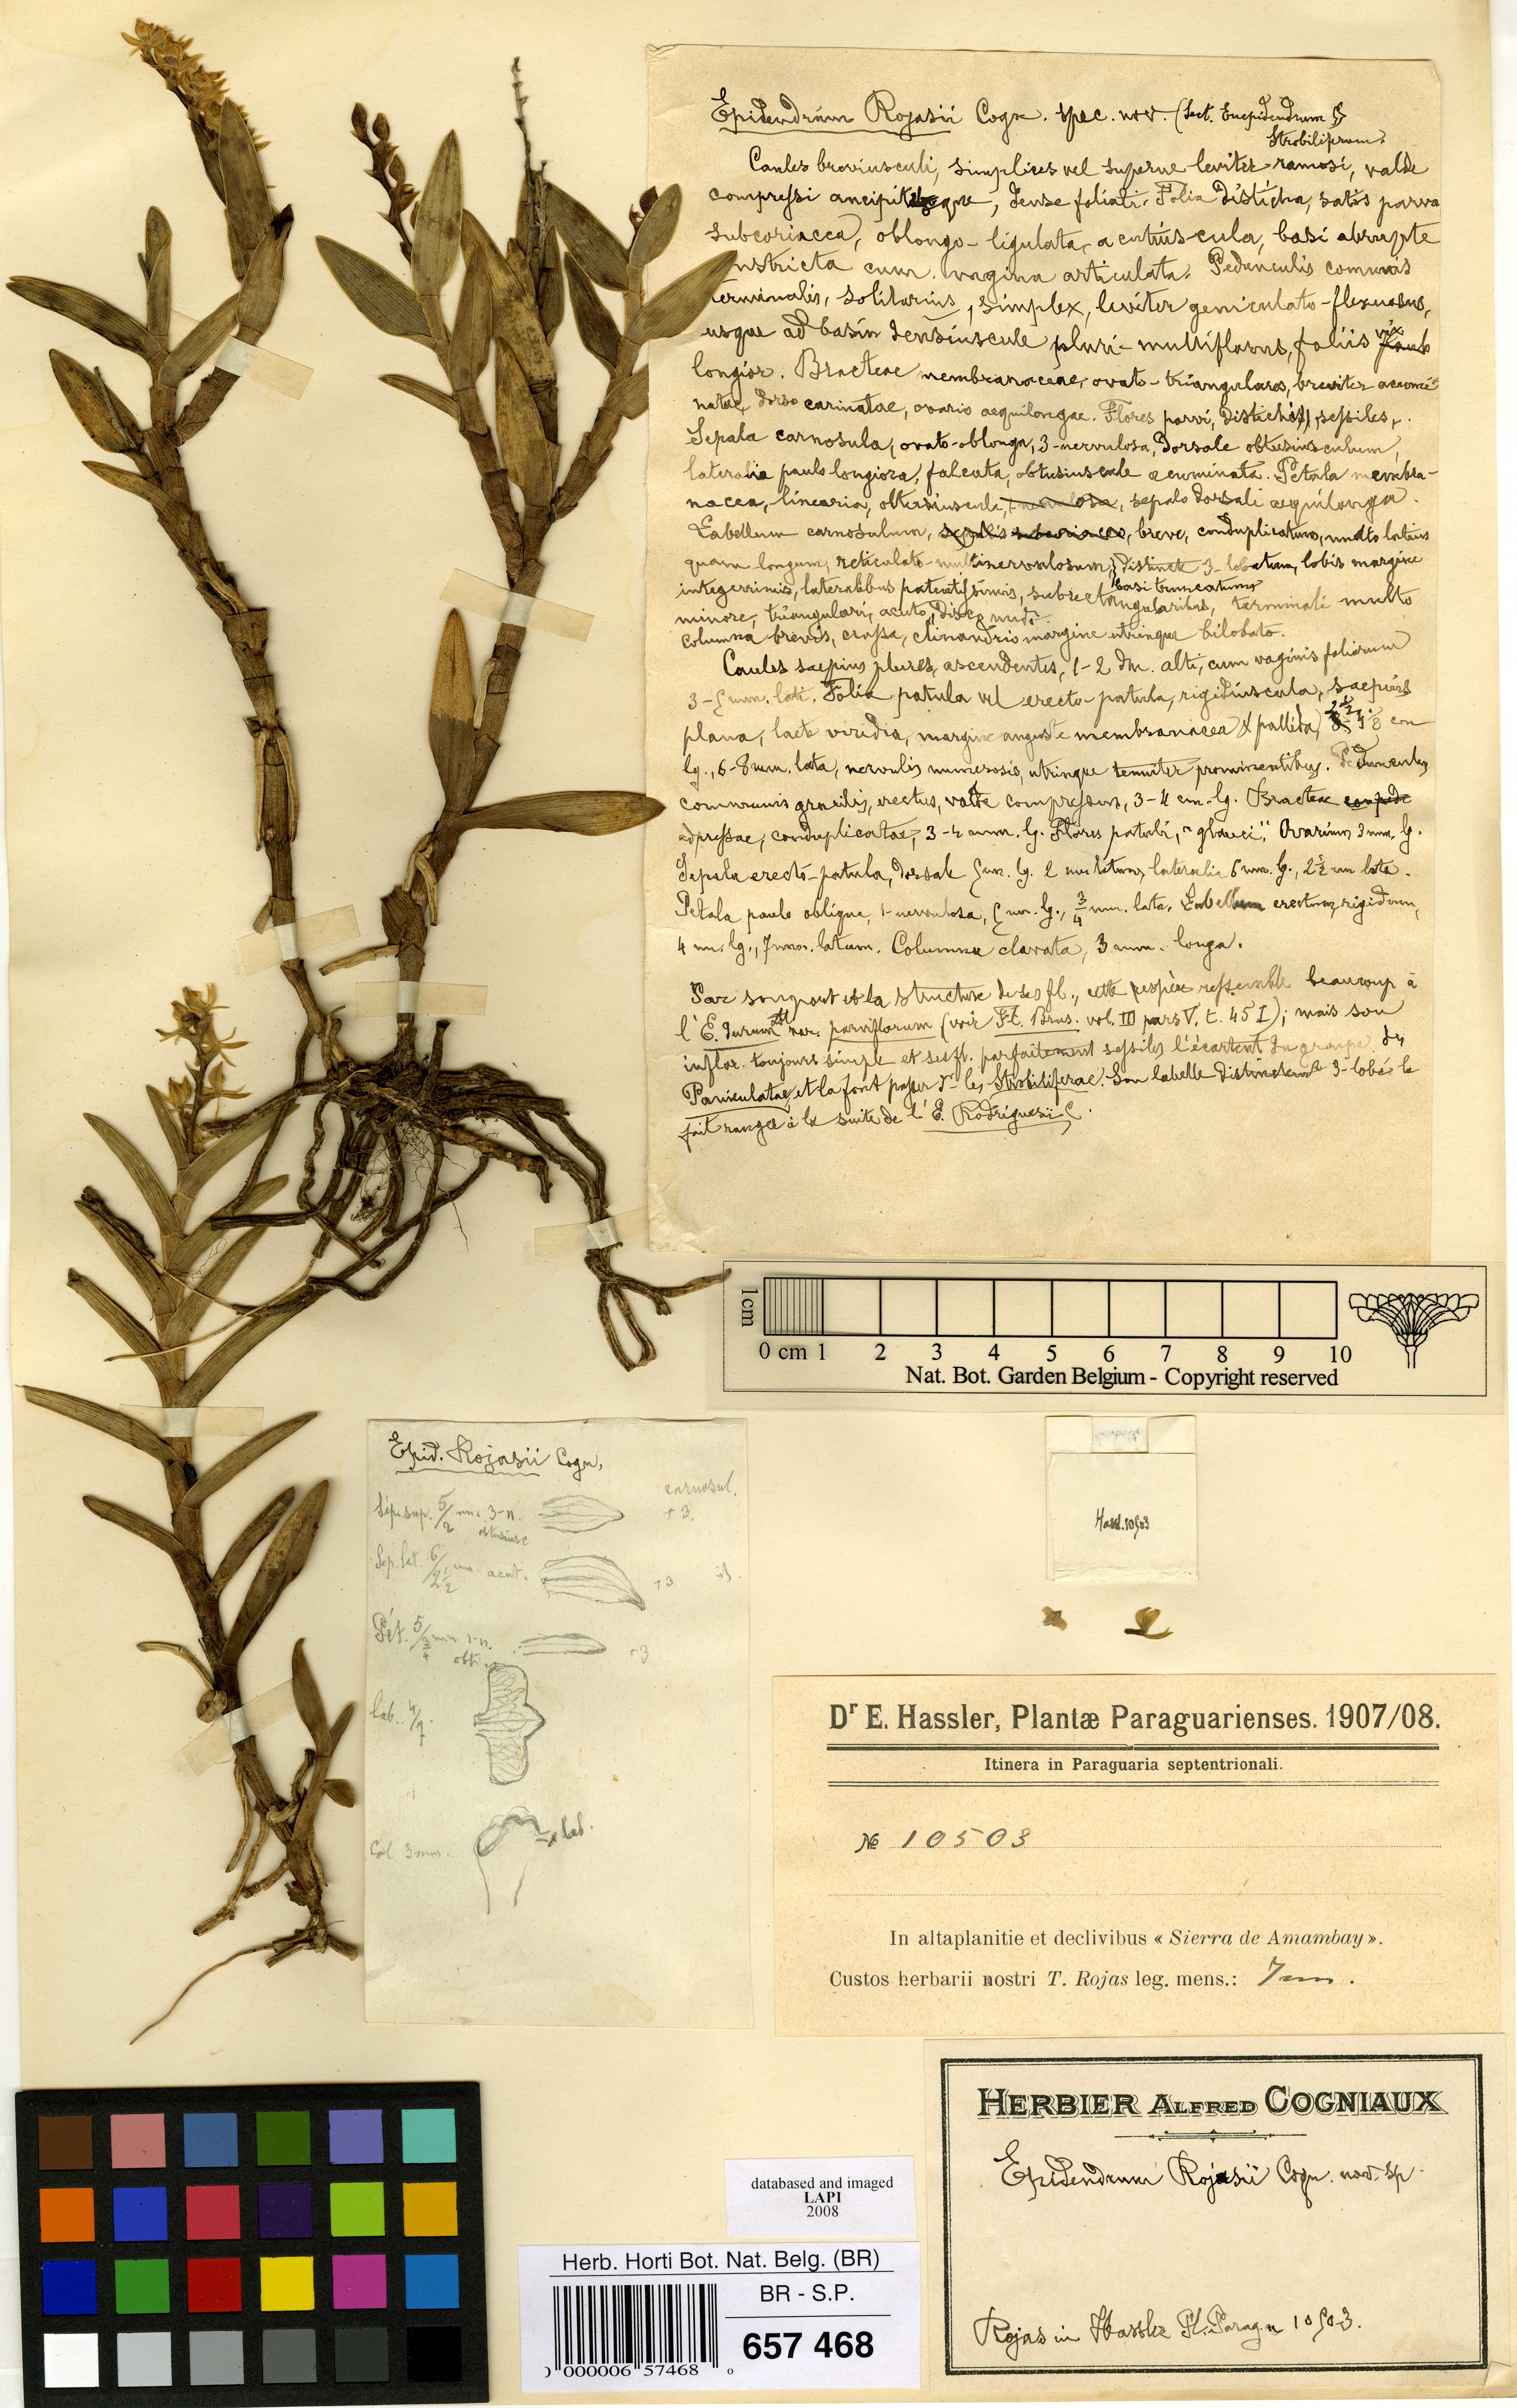 Epidendrum Rojasii Cogn. spec. nov. (Sect. Euepidendrum §
Strobiliferum.
Caules breviusculi, simplices vel superne leviter ramosi, valde
compressi ancipitesque, dense foliati. Folia disticha, satis parva
subcoriacea, oblongo-ligulata, acutiuscula, basi abrupte
constricta cum vagina articulata. Pedunculis comunis
terminalis, solitarius, simplex, leviter geniculato-flexuosus,
usque ad basin densiuscule pluri-multiflorus, foliis vix
longior. Bracteae membranaceae, ovato-triangulares, breviter acumi-
natae, dorso carinatae, ovario aequilongae. Flores parvi, distichi, sessiles,
Sepala carnosula, ovato-oblonga, 3-nervulosa, dorsale obtusiusculum,
lateralia paulo longiora, falcata, obtusiuscule acuminata. Petala membra-
nacea, linearia, obtusiuscula, sepalo dorsali aequilonga.
Labellum carnosulum, breve, conduplicatum, multo latius
quam longum, reticulato-multinervulosum, distincte 3-lobatum, lobis margine
basi truncatum
integerrimis, lateralibus patentissimis, subrectangularibus, terminali multo
minore, triangulari, acuto, disco nudo.
Columna brevis, crassa, clinandrio margine utrinque bilobato.
Caules saepius plures, ascendentes, 1-2 dm. alti, cum vaginis foliorum
3-5 mm. lati. Folia patula vel erecto-patula, rigidiuscula, saepius
plana, laete viridia, margine anguste membranacea & pallida, cm
lg., 6-8 mm. lata, nervulis numerosis, utrinque tenuiter prominentibus. Pedunculus
communis gracilis, erectus, valde compressus, 3-4 cm. lg. Bracteae
adpressae, conduplicatae, 3-4 mm. lg. Flores patuli, "glauci". Ovarium 3 mm. lg.
Sepala erecto-patula, dorsale 5 mm. lg. 2 mm latum, lateralia 6 mm. lg., 2½ mm lata.
Petala paulo obliqua, 1-nervulosa, 5 mm. lg., ¾ mm. lata. Labellum erectum, rigidum,
4 mm. lg., 7 mm. latum. Columna clavata, 3 mm. longa.
Par son port et la structure de ses fl., cette espèce ressemble beaucoup à
l'E. durum var. parviflorum (voir Fl. Bras. vol. III pars V, t. 45 I); mais son
inflor. toujours simple et ses fl. parfaitement sessiles l'écartent du groupe des
Paniculatae, et la font passer ds les Strobiliferae. Son labelle distinctemt 3-lobé la
fait ranger à la suite de l'E. Rodriguesii C.
1cm
0 cm 1 2 3 4 5 6 7 8 9 10
Nat. Bot. Garden Belgium - Copyright reserved
Epid. Rojasii Cogn.
carnosul.
Sép. sup. 5/2 mm. 3-n. +3.
obtusiusc
Sep. lat. 6/2½ mm. acut. +3 id.
Pét. 5/¾ mm 1-n. +3
obt.
lab. 4/7.
Col. 3 mm. lab.
Hassl. 10503
Dr E. Hassler, Plantæ Paraguarienses. 1907/08.
Itinera in Paraguaria septentrionali.
№ 10503
In altaplanitie et declivibus « Sierra de Amambay ».
Custos herbarii nostri T. Rojas leg. mens.:
HERBIER ALFRED COGNIAUX
Epidendrum Rojasii Cogn. nov. sp.
Rojas in Hassler Pl. Parag. n 10503.
databased and imaged
LAPI
2008
Herb. Horti Bot. Nat. Belg. (BR)
BR - S.P.
657 468
000006 57468